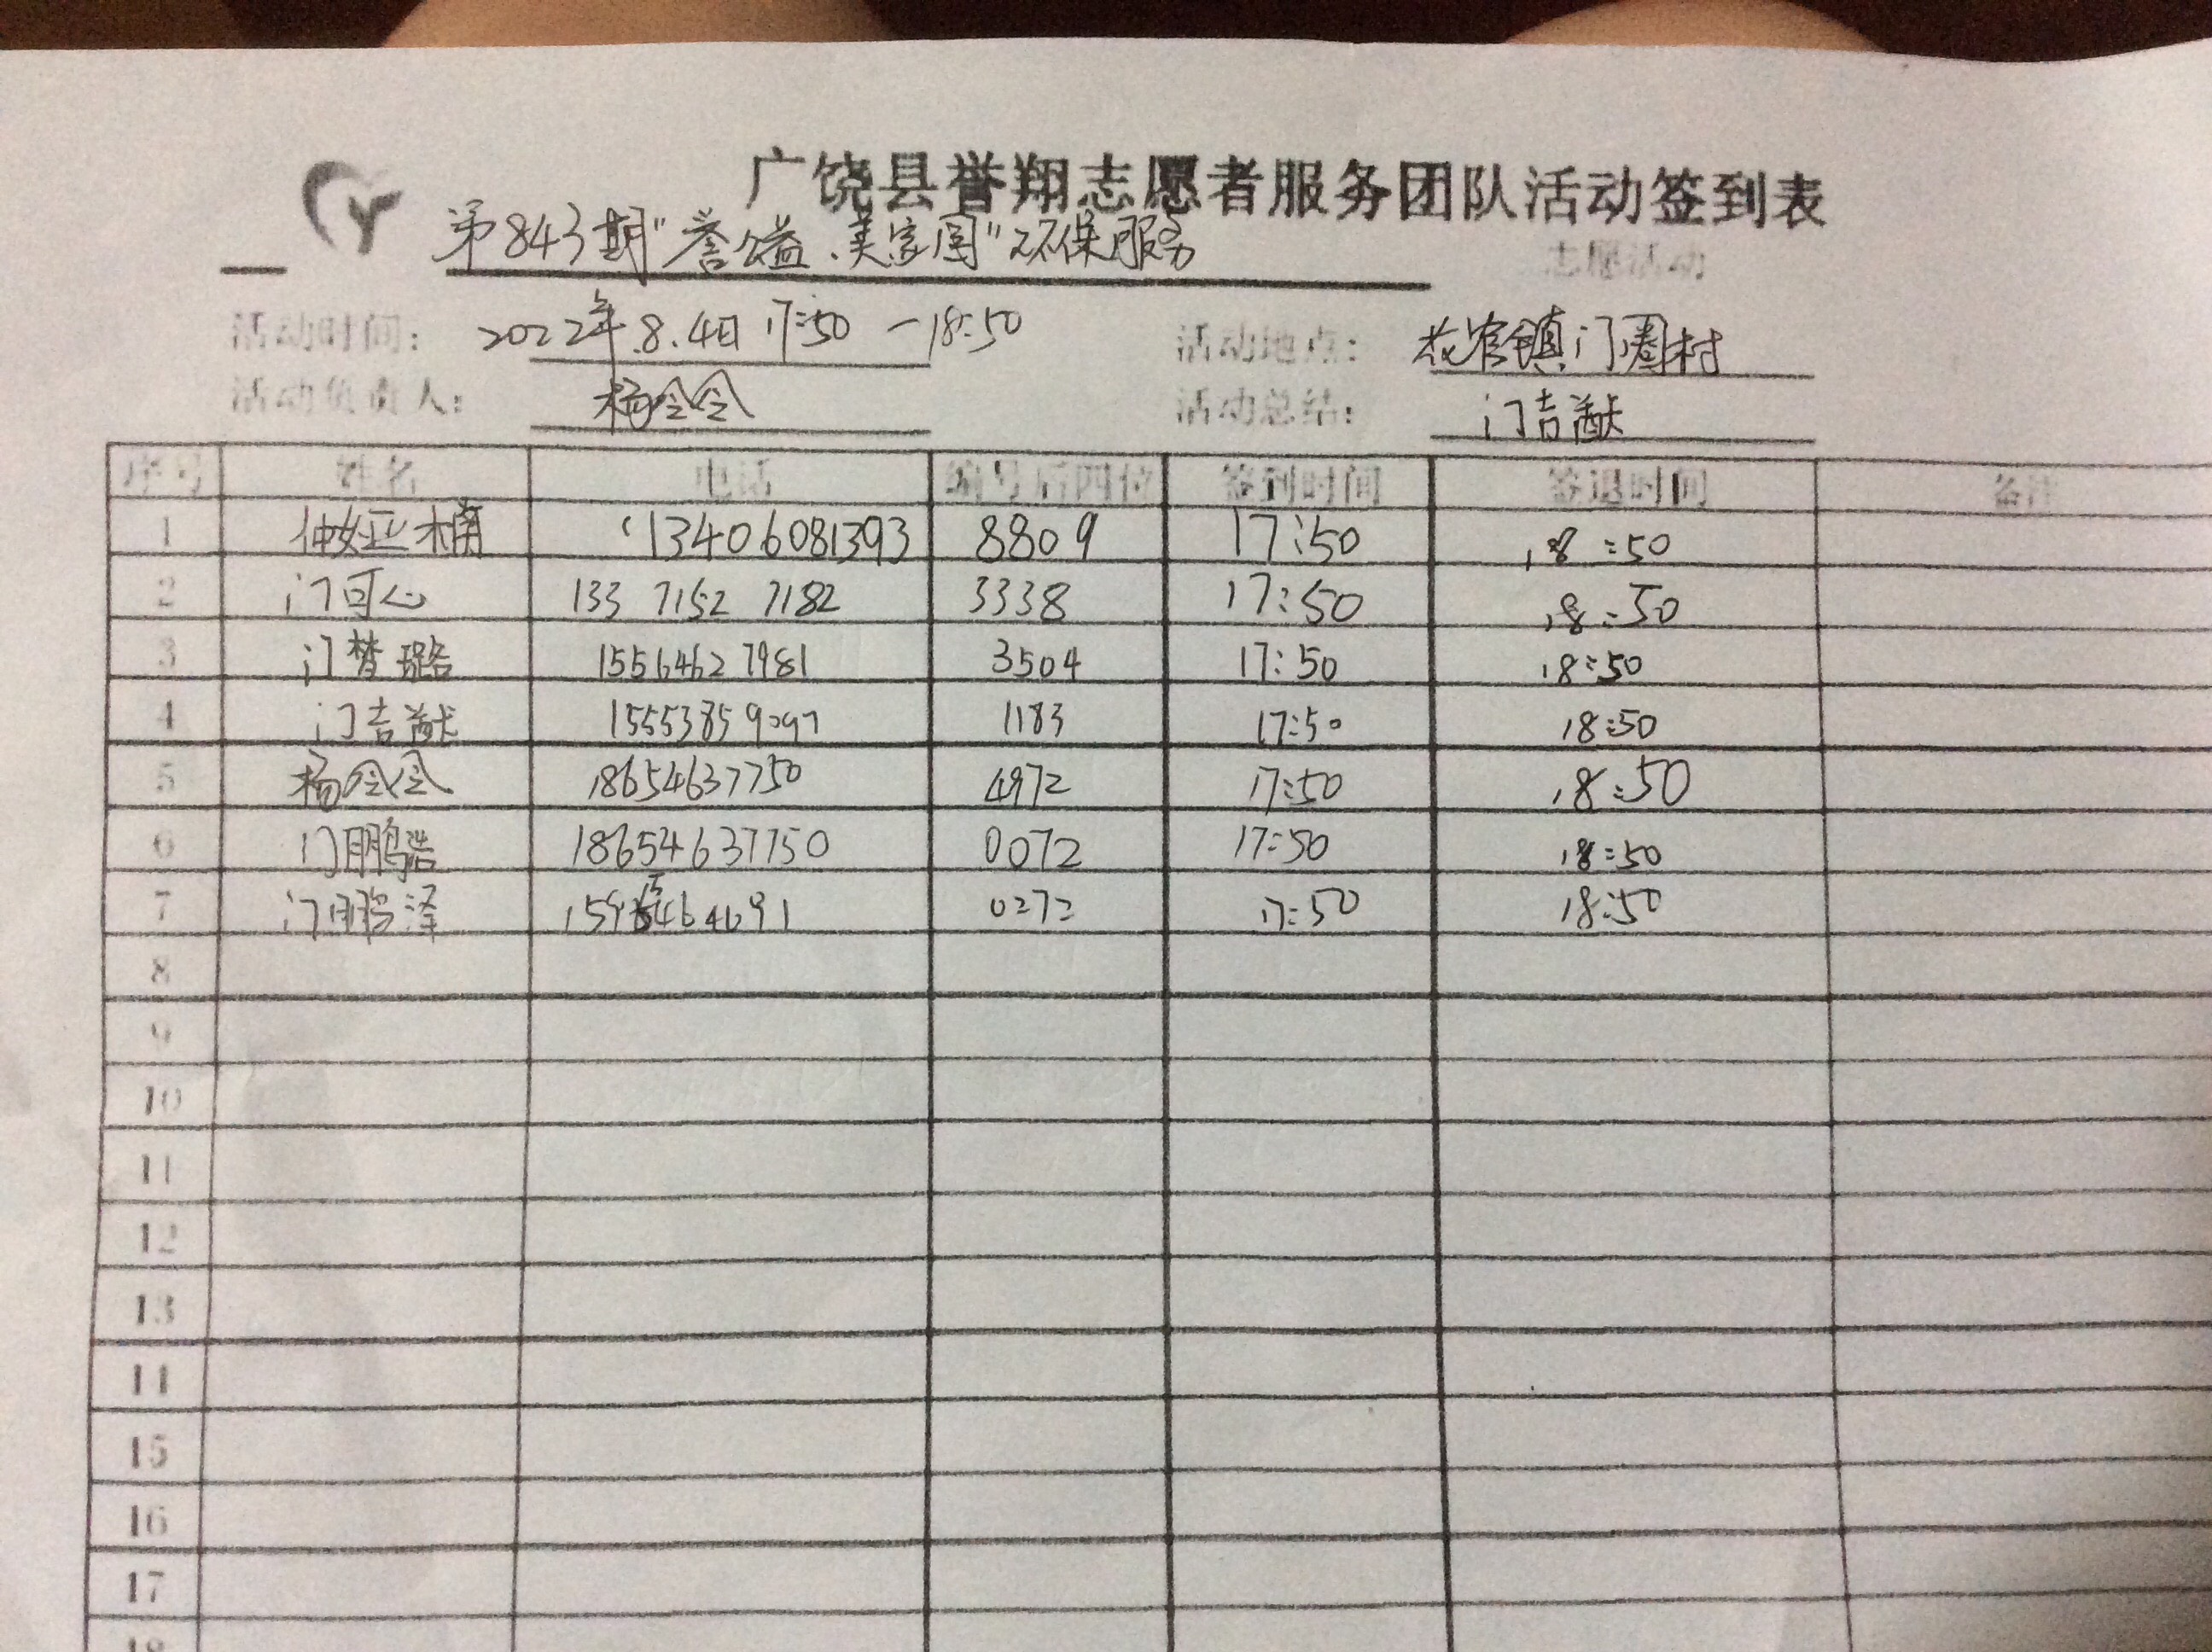 广饶县誉翔志愿者服务团队活动签到表
第843期"誉公益、美家园"环保服务 志愿活动
活动时间: 2022年.8.4日 17:50 —18:50 活动地点: 花官镇门圈村
活动负责人: 杨令令 活动总结: 门吉猷
序号 姓名 电话 编号后四位 签到时间 签退时间 备注
1 13406081393 8809 17:50 18:50
2 门可心 133 7152 7182 3338 17:50 18:50
3 门梦璐 15564627981 3504 17:50 18:50
4 门吉猷 1183 17:50 18:50
5 杨令令 18654637750 4972 17:50 18:50
6 门鹏浩 18654637750 0072 17:50 18:50
7 门鹏泽 0272 17:50 18:50
8
9
10
11
12
13
14
15
16
17
18